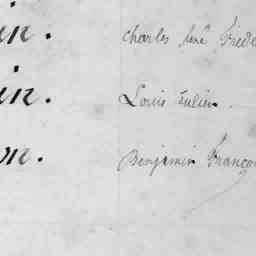 in. Charles René Fréde
in. Louis Julien.
on. Benjamin Françoi